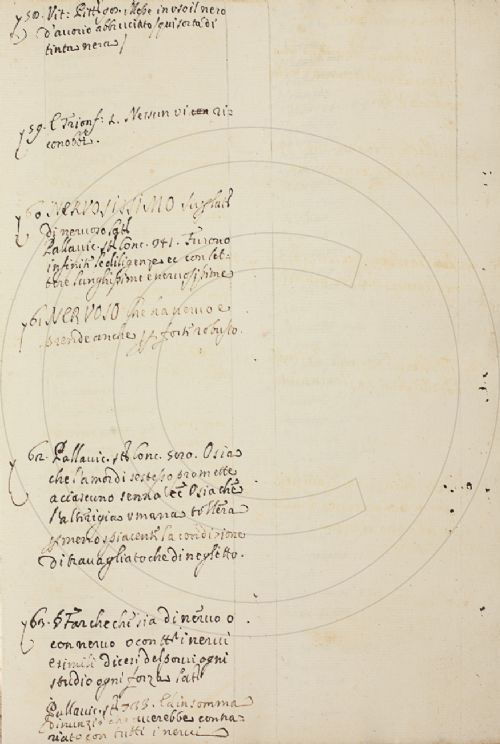 58. Vit: Pitt. 007. Mebe in uso il nero
d'auorio abbruciato, quisorta di
tinta nera
59. E Trionf: 2. Nessun vi
conobbi.
60. NERVOSISSIMO Suplat
Di neruoso Lat
Pallauic. st. Conc. 941. Furono
infinite le diligenze ec con let-
tere lunghissime e neruosissime
61. NERVOSO che ha neruo e
prende anche p forte robusto.
62. Pallauic. st. Conc. 5070. Osia
che l'amor di se stesso promette
a ciascuno senno, ec Osia che
l'alterigia vmana tollera
p meno spiacente la condizione
di trauagliato che di negletto.
63. Far che che sia di neruo o
con neruo o con tti i nerui
e simili dicesi del porui ogni
studio ogni forza Lat
Pallauic. st. 733. La insomma
Dinunziò che auerebbe contra-
riato con tutti i nerui